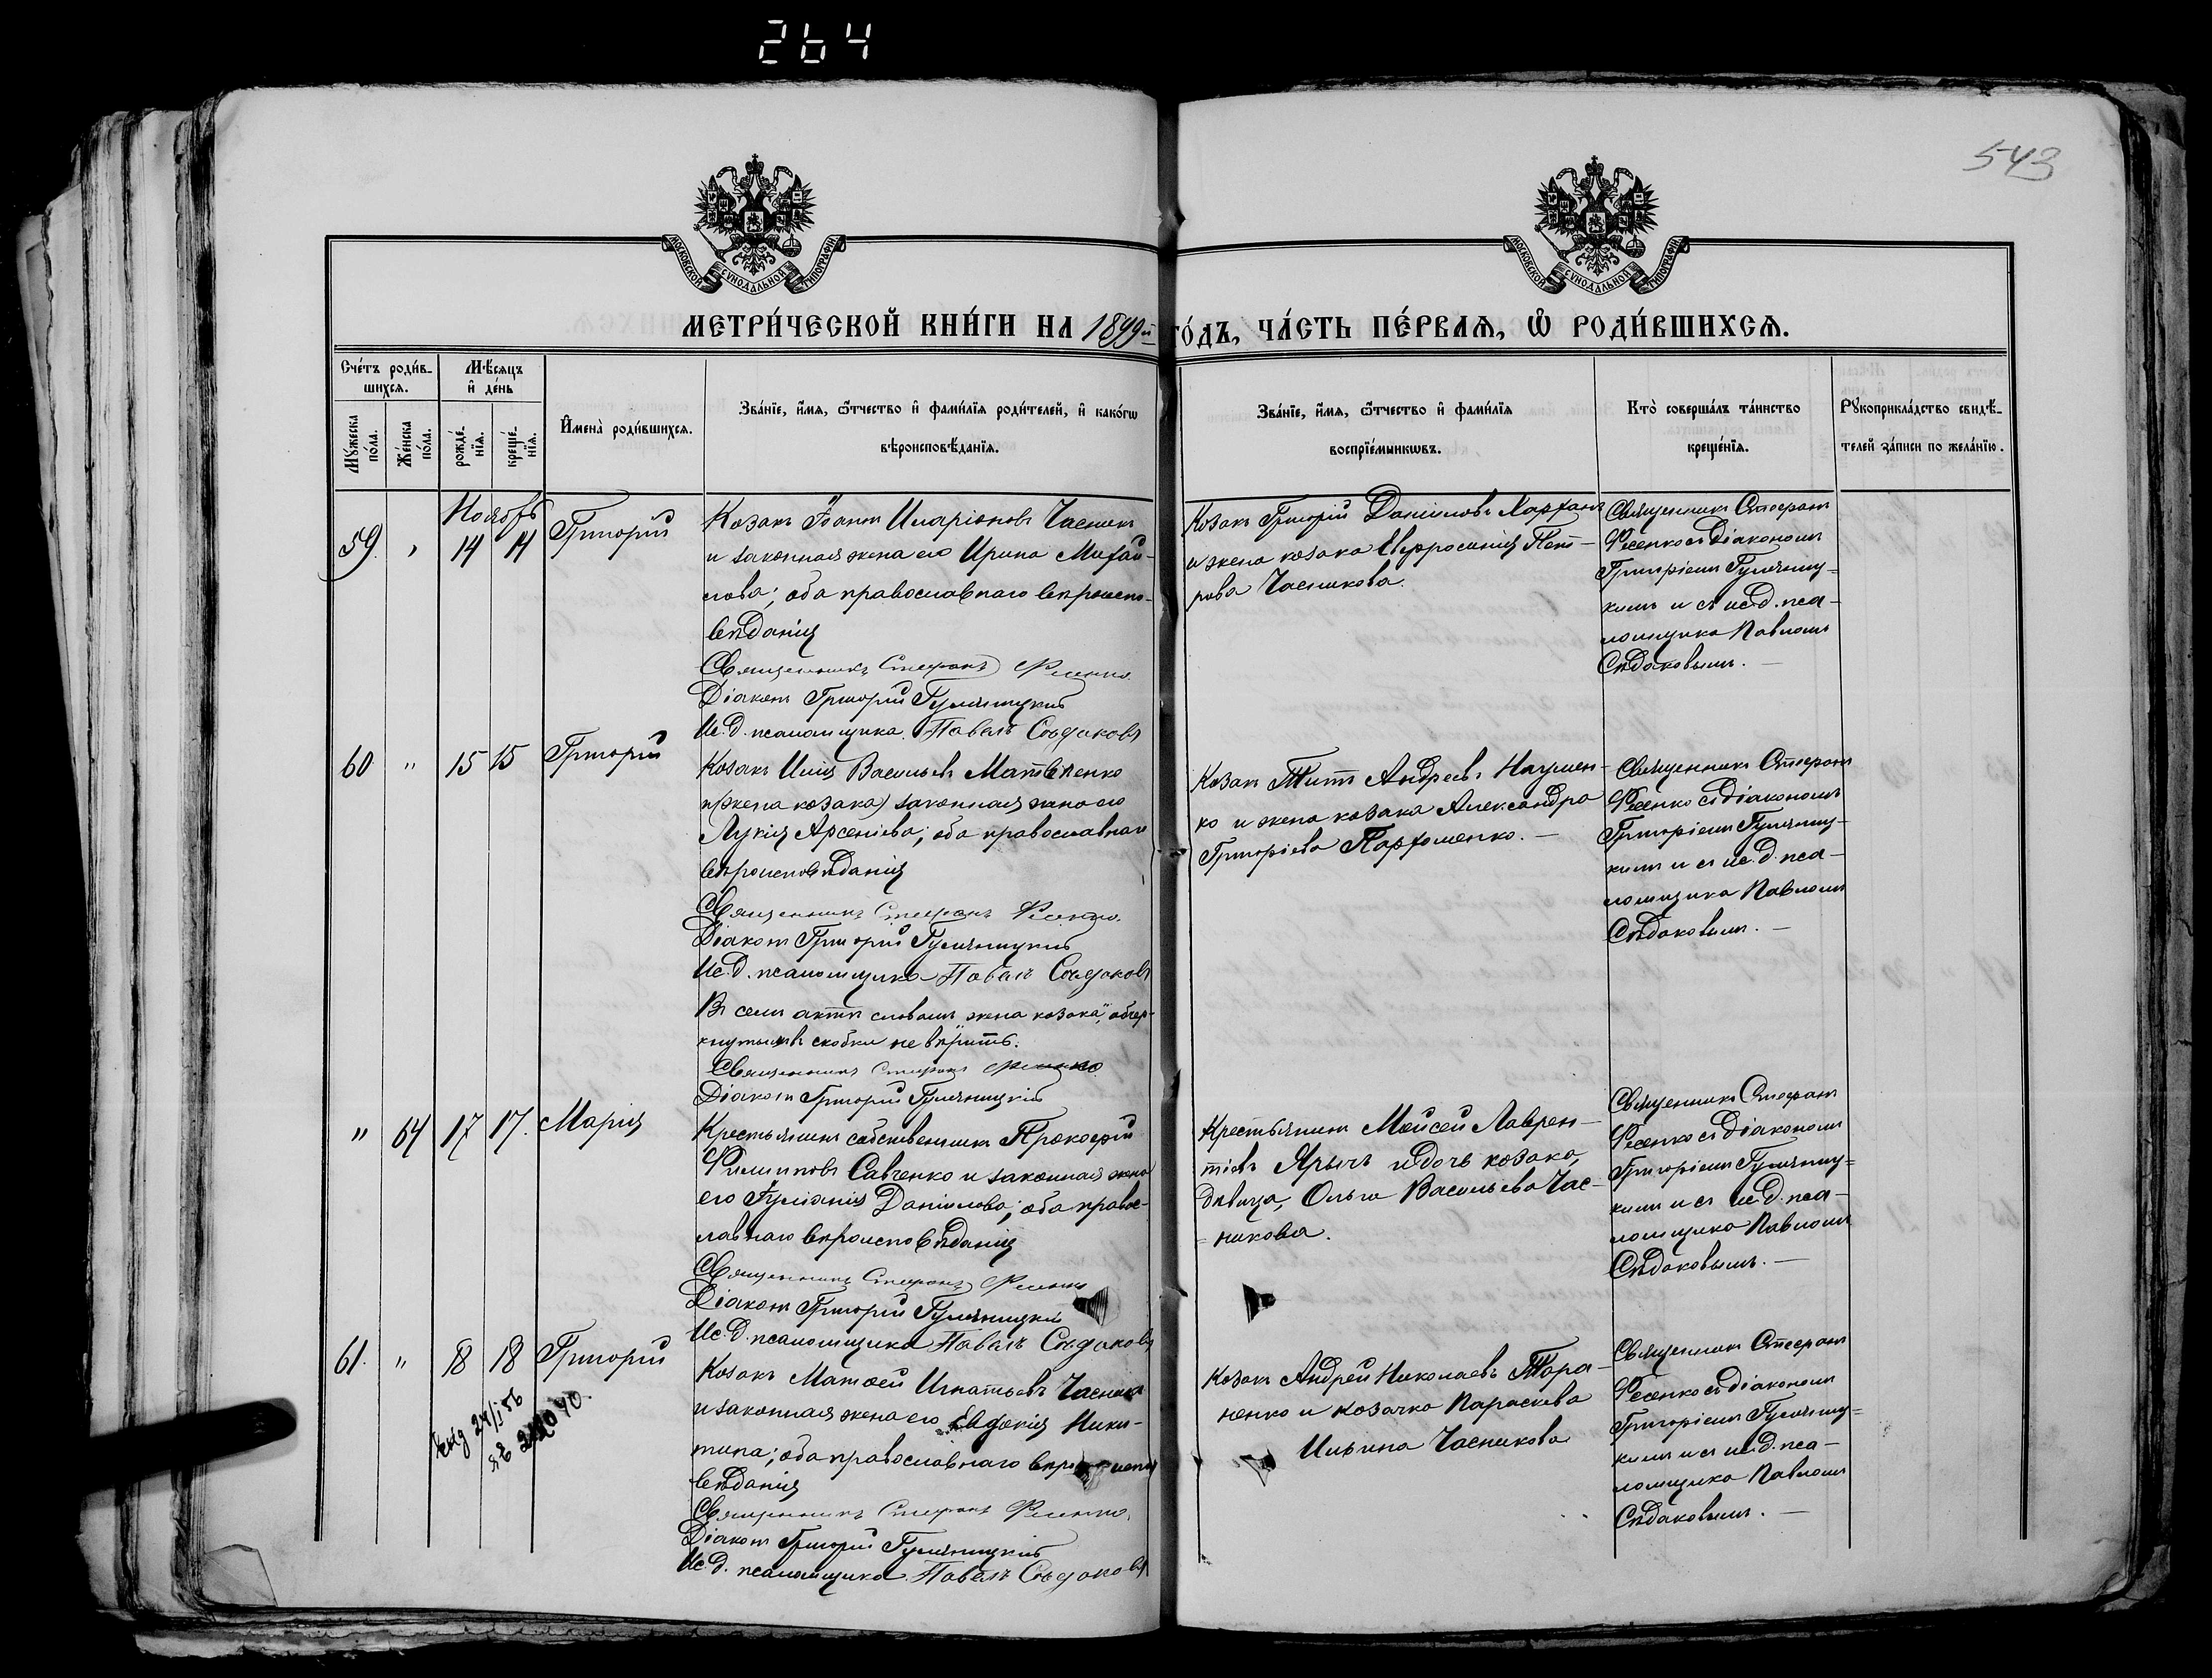 264
543
МОСКОВСКОЙ СѴНОДАЛЬНОЙ ТИПОГРАФІИ
МОСКОВСКОЙ СѴНОДАЛЬНОЙ ТИПОГРАФІИ
МЕТРИ́ЧЕСКОЙ КНИ́ГИ НА 1899й ГО́ДЪ, ЧА́СТЬ ПЕ́РВАѦ, Ѡ҆ РОДИ́ВШИХСѦ.
Сче́тъ роди́в-
шихсѧ.
Мѣ́сѧцъ
и҆ де́нь
Мꙋ́жеска
по́ла.
Же́нска
по́ла.
рожде́-
нїѧ.
креще́-
нїѧ.
И҆мена̀ роди́вшихсѧ.
Зва́нїе, и҆́мѧ, ѻ҆́тчество и҆ фами́лїѧ роди́телей, и҆ како́гѡ
вѣроисповѣ́данїѧ.
Зва́нїе, и҆́мѧ, ѻ҆́тчество и҆ фами́лїѧ
воспрїе́мникѡвъ.
Кто̀ соверша́лъ та́инство
креще́нїѧ.
Рꙋкоприкла́дство свидѣ́-
телей за́писи по жела́нїю.
Ноябрь
59. „ 14 14 Григорій
Козакъ Іоаннъ Иларіоновъ Часникъ
и законная жена его Ирина Михаи-
лова; оба православнаго вѣроиспо-
вѣданія
Священникъ Стефанъ Фесенко
Діаконъ Григорій Гуляницкій
Ис. д. псаломщика Павелъ Сѣдаковъ
Козакъ Григорій Даніиловъ Хархан
и жена козака Евфросинія Пет-
рова Часникова.
Священникъ Стефанъ
Фесенко съ діакономъ
Григоріемъ Гуляниц-
кимъ и съ ис. д. пса-
ломщика Павломъ
Сѣдаковымъ. —
60 „ 15 15 Григорій
Козакъ Илія Васильевъ Матвѣенко
и (жена козака) законная жена его
Лукія Арсеніева; оба православнаго
вѣроисповѣданія
Священникъ Стефанъ Фесенко
Діаконъ Григорій Гуляницкій
Ис. д. псаломщика Павелъ Сѣдаковъ
Въ семъ актѣ словамъ „жена козака", обчер-
кнутымъ въ скобки не вѣрить.
Священникъ Стефанъ Фесенко
Діаконъ Григорій Гуляницкій
Козакъ Титъ Андреевъ Наумен-
ко и жена козака Александра
Григоріева Пархоменко. —
Священникъ Стефанъ
Фесенко съ діакономъ
Григоріемъ Гуляниц-
кимъ и съ ис. д. пса-
ломщика Павломъ
Сѣдаковымъ. —
„ 64 17 17. Марія
Крестьянинъ собственникъ Прокофій
Филиповъ Савченко и законная жена
его Іуліанія Даніилова; оба право-
славнаго вѣроисповѣданія
Священникъ Стефанъ Фесенко
Діаконъ Григорій Гуляницкій
Ис. д. псаломщика Павелъ Сѣдаковъ
Крестьянинъ Моисей Лаврен-
тіевъ Ярычъ и дочь козака,
дѣвица, Ольга Васильева Час-
никова.
Священникъ Стефанъ
Фесенко съ діакономъ
Григоріемъ Гуляниц-
кимъ и съ ис. д. пса-
ломщика Павломъ
Сѣдаковымъ. —
61. „ 18 18 Григорій
24/I 56
Козакъ Матѳей Игнатьевъ Часникъ
и законная жена его Евдокія Ники-
тина; оба православнаго вѣроиспо
вѣданія
Священникъ Стефанъ Фесенко
Діаконъ Григорій Гуляницкій
Ис. д. псаломщика Павелъ Сѣдаковъ
Козакъ Андрей Николаевъ Тара-
ненко и козачка Параскева
Ильина Часникова
Священникъ Стефанъ
Фесенко съ діакономъ
Григоріемъ Гуляниц-
кимъ и съ ис. д. пса-
ломщика Павломъ
Сѣдаковымъ. —